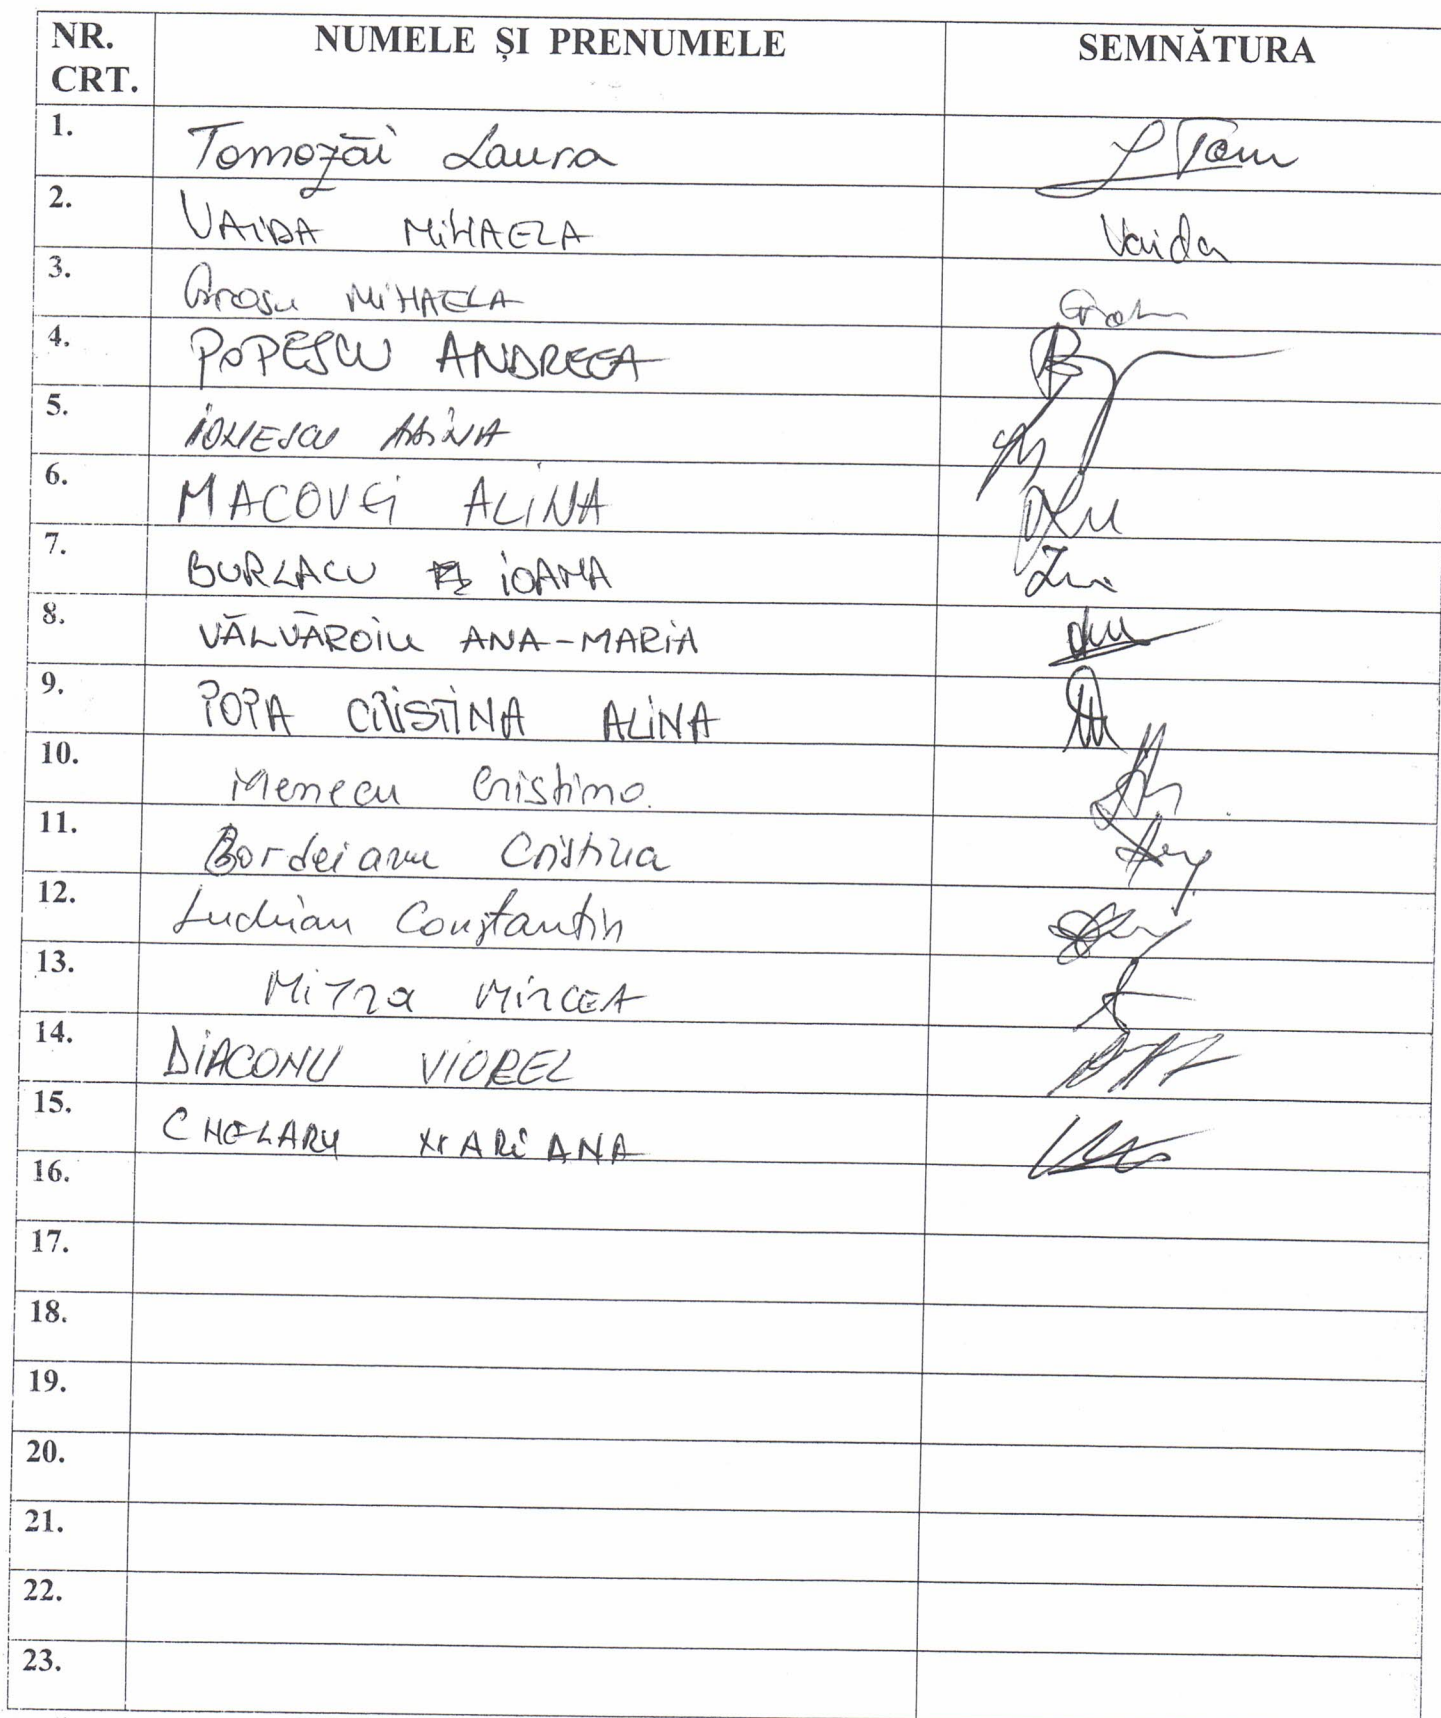 NR. CRT. NUMELE ȘI PRENUMELE SEMNĂTURA
1. Tomozăi Laura
2. VAIDA MIHAELA Vaida
3. Grosu MIHAELA
4. POPESCU ANDREEA
5. IONESCU ALINA
6. MACOVEI ALINA
7. BURLACU IOANA
8. VĂLVĂROIU ANA-MARIA
9. POPA CRISTINA ALINA
10. Menecu Cristina
11. Bordeianu Cristina
12. Luchian Constantin
13. Mitra MIRCEA
14. DIACONU VIOREL
15. CHELARU MARIANA
16.
17.
18.
19.
20.
21.
22.
23.